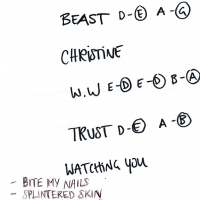 BEAST D-E A-G
CHRISTINE
W.W E-D E-D B-A
TRUST D-E A-B
WATCHING YOU
- BITE MY NAILS
- SPLINTERED SKIN